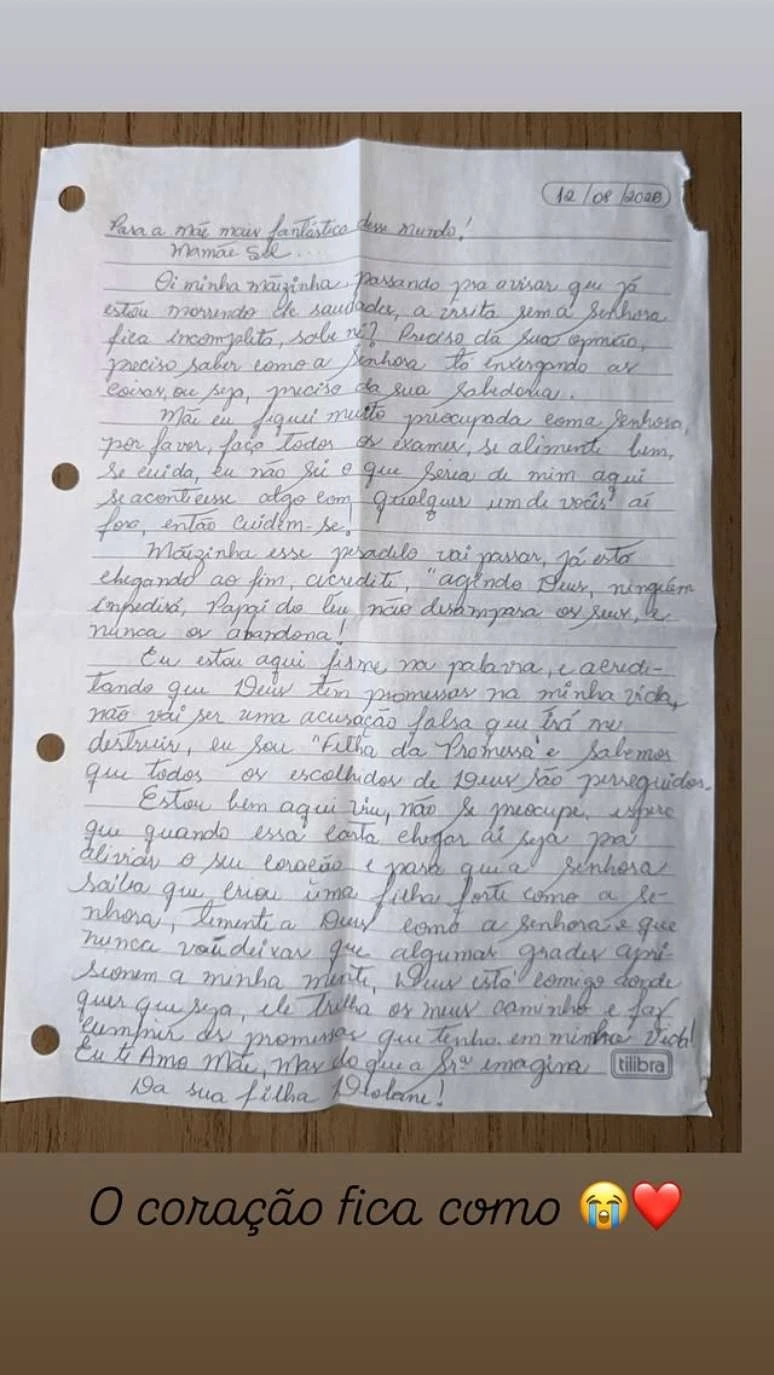 12/08/2026
Para a mãe mais fantástica desse mundo!
Mamãe Sol....
Oi minha mãizinha, passando pra avisar que já
estou morrendo de saudades, a visita sem a senhora
fica incompleta, sabe né? Preciso da sua opinião,
preciso saber como a senhora tá enxergando as
coisas, ou seja, preciso da sua sabedoria.
Mãe eu fiquei muito preocupada com a senhora,
por favor, faça todos os exames, se alimente bem,
se cuida, eu não sei o que seria de mim aqui
se acontecesse algo com qualquer um de vocês aí
fora, então cuidem-se!
Mãizinha esse pesadelo vai passar, já está
chegando ao fim, acredite, "agindo Deus, ninguém
impedirá, Papai do Céu não desampara os seus, e
nunca os abandona!
Eu estou aqui firme na palavra, e acredi-
tando que Deus tem promessas na minha vida,
não vai ser uma acusação falsa que irá me
destruir, eu sou "Filha da Promessa" e sabemos
que todos os escolhidos de Deus são perseguidos.
Estou bem aqui viu, não se preocupe, espero
que quando essa carta chegar aí seja pra
aliviar o seu coração e para que a senhora
saiba que criou uma filha forte como a se-
nhora, temente a Deus como a senhora e que
nunca vou deixar que algumas grades apri-
sionem a minha mente, Deus está comigo aonde
quer que seja, ele trilha os meus caminhos e faz
cumprir as promessas que tenho em minha vida!
Eu te Amo Mãe, mas do que a Srª imagina
tilibra
Da sua filha Deolane!
O coração fica como 😭❤️